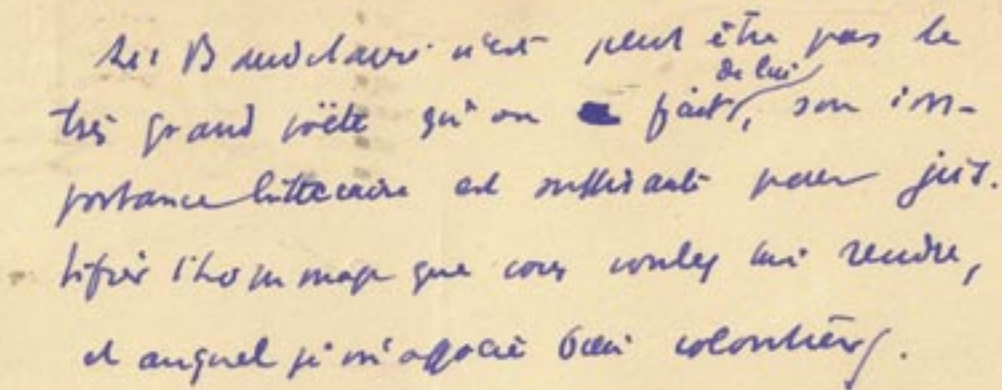 Si Baudelaire n'est peut être pas le
très grand poëte qu'on fait de lui, son im-
portance littéraire est suffisante pour jus-
tifier l'hommage que vous voulez lui rendre,
et auquel je m'associe bien volontiers.